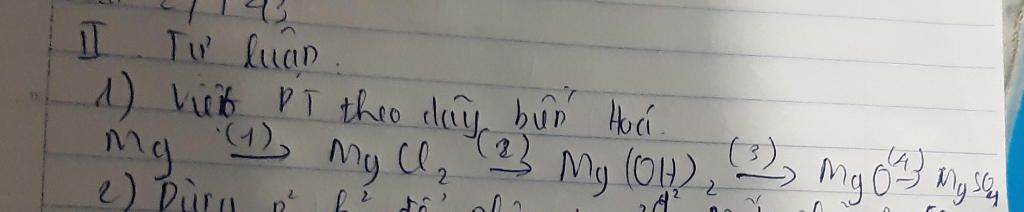 II. Tự luận.
1) Viết PT theo dãy biến Hoá.
Mg (1)→ MgCl₂ (2)→ Mg(OH)₂ (3)→ MgO (4)→ MgSO₄
2) Dùng p²